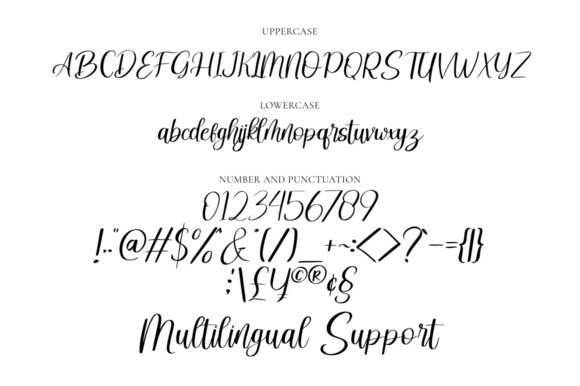 UPPERCASE
ABCDEFGHIJKLMNOPQRSTUVWXYZ
LOWERCASE
abcdefghijklmnopqrstuvwxyz
NUMBER AND PUNCTUATION
0123456789
!.."@#$%*&"(/)_+~:<>?`-={|}
;'\£¥©®¢§
Multilingual Support